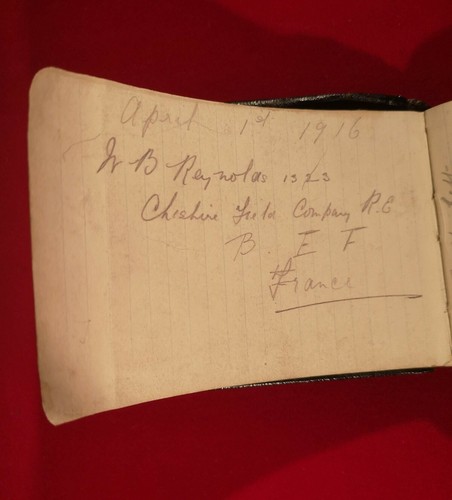 April 1st 1916
W B Reynolds 1323
Cheshire Field Company R.E
B. E F
France